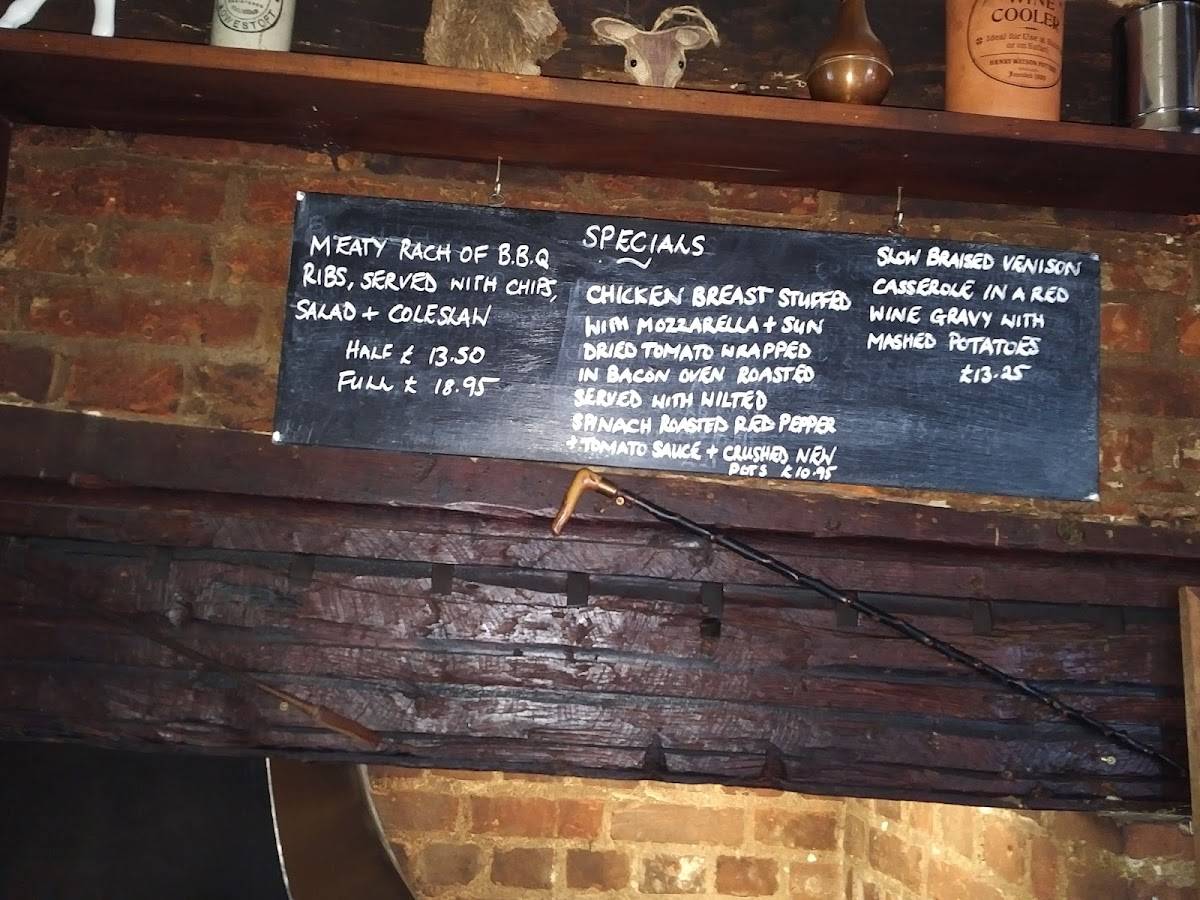 OWESTOFT
WINE
COOLER
Ideal for Use at Home
or on Safari
HENRY WATSON POTTERY
Founded 1800
SPECIALS
MEATY RACH OF B.B.Q
RIBS, SERVED WITH CHIPS,
SALAD + COLESLAW
HALF £ 13.50
FULL £ 18.95
CHICKEN BREAST STUFFED
WITH MOZZARELLA + SUN
DRIED TOMATO WRAPPED
IN BACON OVEN ROASTED
SERVED WITH WILTED
SPINACH ROASTED RED PEPPER
+ TOMATO SAUCE + CRUSHED NEW
POTS £10.95
SLOW BRAISED VENISON
CASSEROLE IN A RED
WINE GRAVY WITH
MASHED POTATOES
£13.25